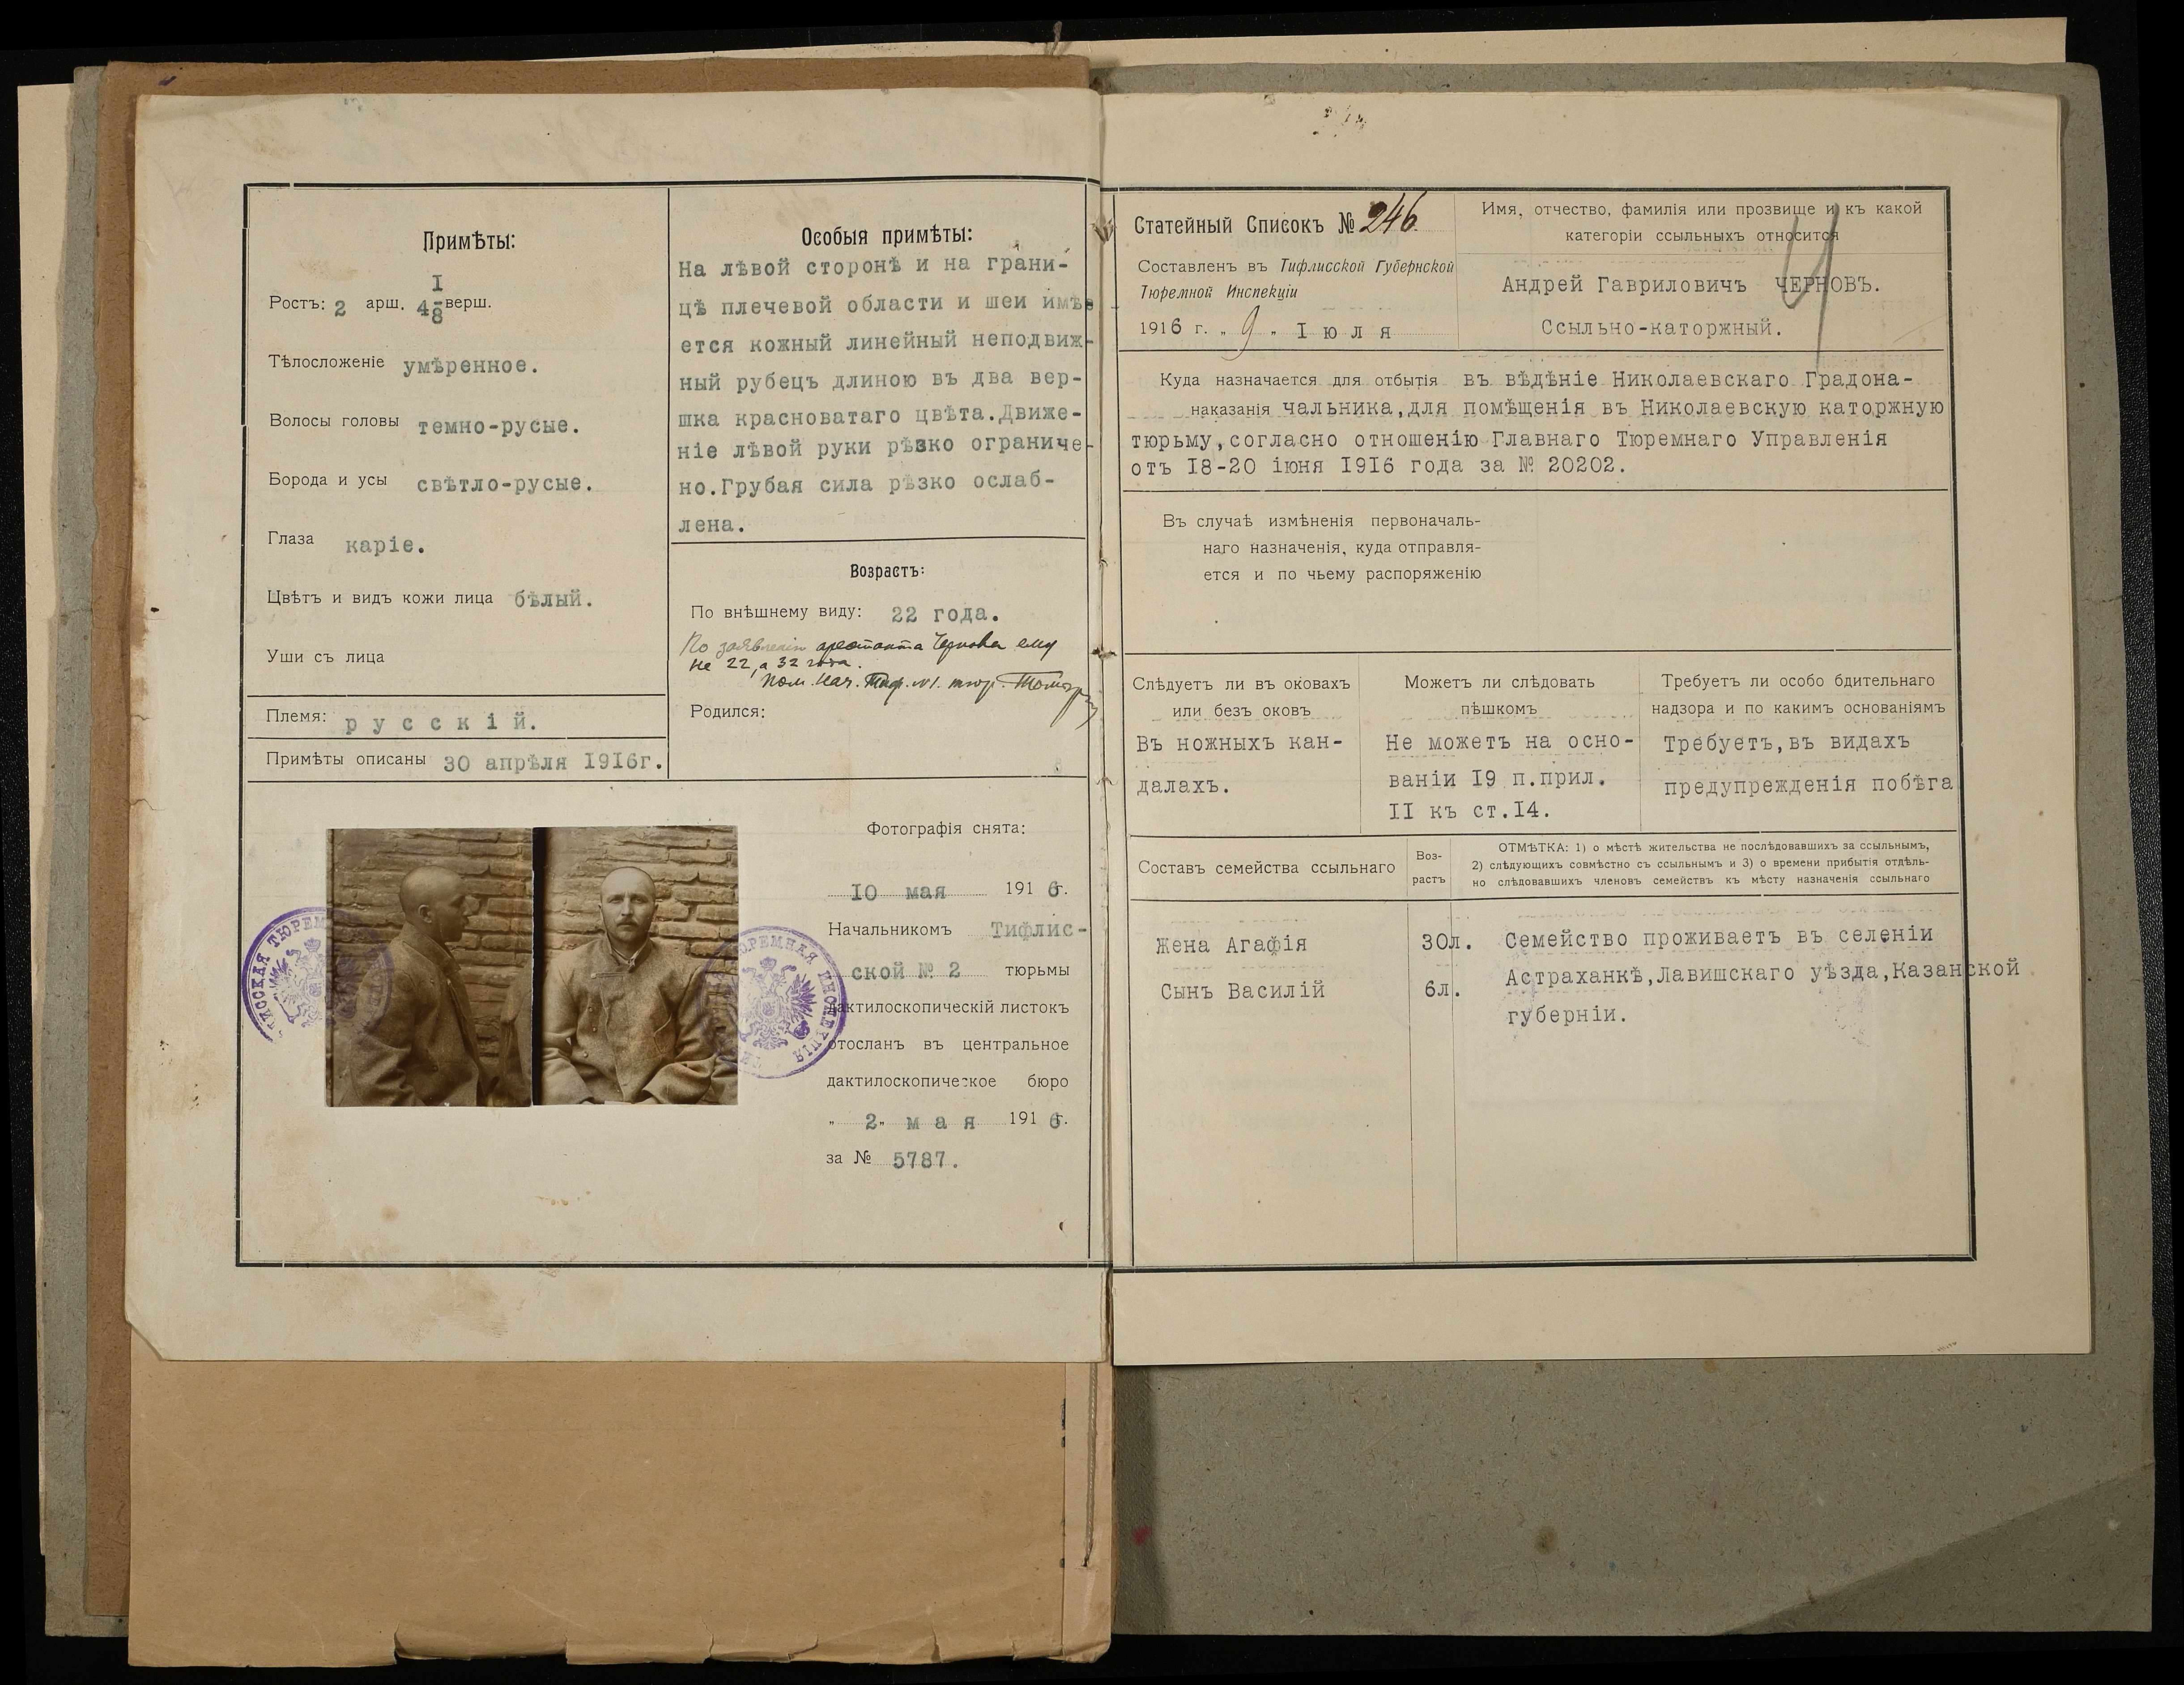 Примѣты:
Ростъ: 2 арш. 4 I/8 верш.
Тѣлосложеніе умѣренное.
Волосы головы темно-русые.
Борода и усы свѣтло-русые.
Глаза каріе.
Цвѣтъ и видъ кожи лица бѣлый.
Уши съ лица
Племя: русскій.
Примѣты описаны 30 апрѣля 1916г.
Особыя примѣты:
На лѣвой сторонѣ и на грани-
цѣ плечевой области и шеи имѣе
ется кожный линейный неподвиж-
ный рубецъ длиною въ два вер-
шка красноватаго цвѣта.Движе-
ніе лѣвой руки рѣзко ограниче-
но.Грубая сила рѣзко ослаб-
лена.
Возрастъ:
По внѣшнему виду: 22 года.
По заявленію арестанта Чернова ему
не 22, а 32 года.
Пом. Нач. Тиф. №1. тюр.
Родился:
Фотографія снята:
IO мая 1916г.
Начальникомъ Тифлис-
ской № 2 тюрьмы
дактилоскопическій листокъ
отосланъ въ центральное
дактилоскопическое бюро
„ 2 „ мая 1916г.
за № 5787.
ТИФЛИССКАЯ ТЮРЕМНАЯ
ТЮРЕМНАЯ ИНСПЕКЦІЯ
Статейный Списокъ № 246.
Составленъ въ Тифлисской Губернской
Тюремной Инспекціи
1916 г. „ 9 „ Iюля
Имя, отчество, фамилія или прозвище и къ какой
категоріи ссыльныхъ относится
Андрей Гавриловичъ ЧЕРНОВЪ.
Ссыльно-каторжный.
Ч
Куда назначается для отбытія въ вѣдѣніе Николаевскаго Градона-
наказанія чальника,для помѣщенія въ Николаевскую каторжную
тюрьму,согласно отношенію Главнаго Тюремнаго Управленія
отъ I8-20 іюня I9I6 года за № 20202.
Въ случаѣ измѣненія первоначаль-
наго назначенія, куда отправля-
ется и по чьему распоряженію
Слѣдуетъ ли въ оковахъ
или безъ оковъ
Въ ножныхъ кан-
далахъ.
Можетъ ли слѣдовать
пѣшкомъ
Не можетъ на осно-
ваніи I9 п.прил.
II къ ст.I4.
Требуетъ ли особо бдительнаго
надзора и по какимъ основаніямъ
Требуетъ,въ видахъ
предупрежденія побѣга
Составъ семейства ссыльнаго
Воз-
растъ
ОТМѢТКА: 1) о мѣстѣ жительства не послѣдовавшихъ за ссыльнымъ,
2) слѣдующихъ совмѣстно съ ссыльнымъ и 3) о времени прибытія отдѣль-
но слѣдовавшихъ членовъ семействъ къ мѣсту назначенія ссыльнаго
Жена Агафія 30л.
Сынъ Василій 6л.
Семейство проживаетъ въ селеніи
Астраханкѣ,Лавишскаго уѣзда,Казанской
губерніи.